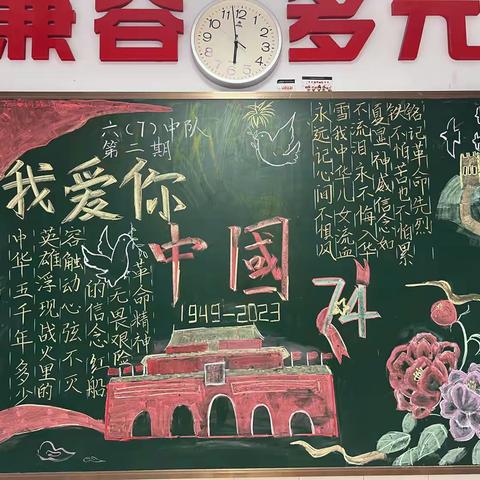 兼容 多元
六(7)中队
第二期
我爱你
中國
1949—2023
74
中华五千年多少
英雄浮现战火里的
容触动心弦不灭
的信念红船
无畏艰险
革命精神
永死记心间不惧风
雪我中华儿女流血
不流泪永不悔入华
夏显神威信念如
铁不怕苦也不怕累
铭记革命先烈